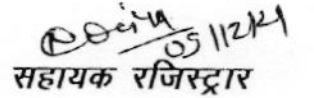 05/12/24
सहायक रजिस्ट्रार